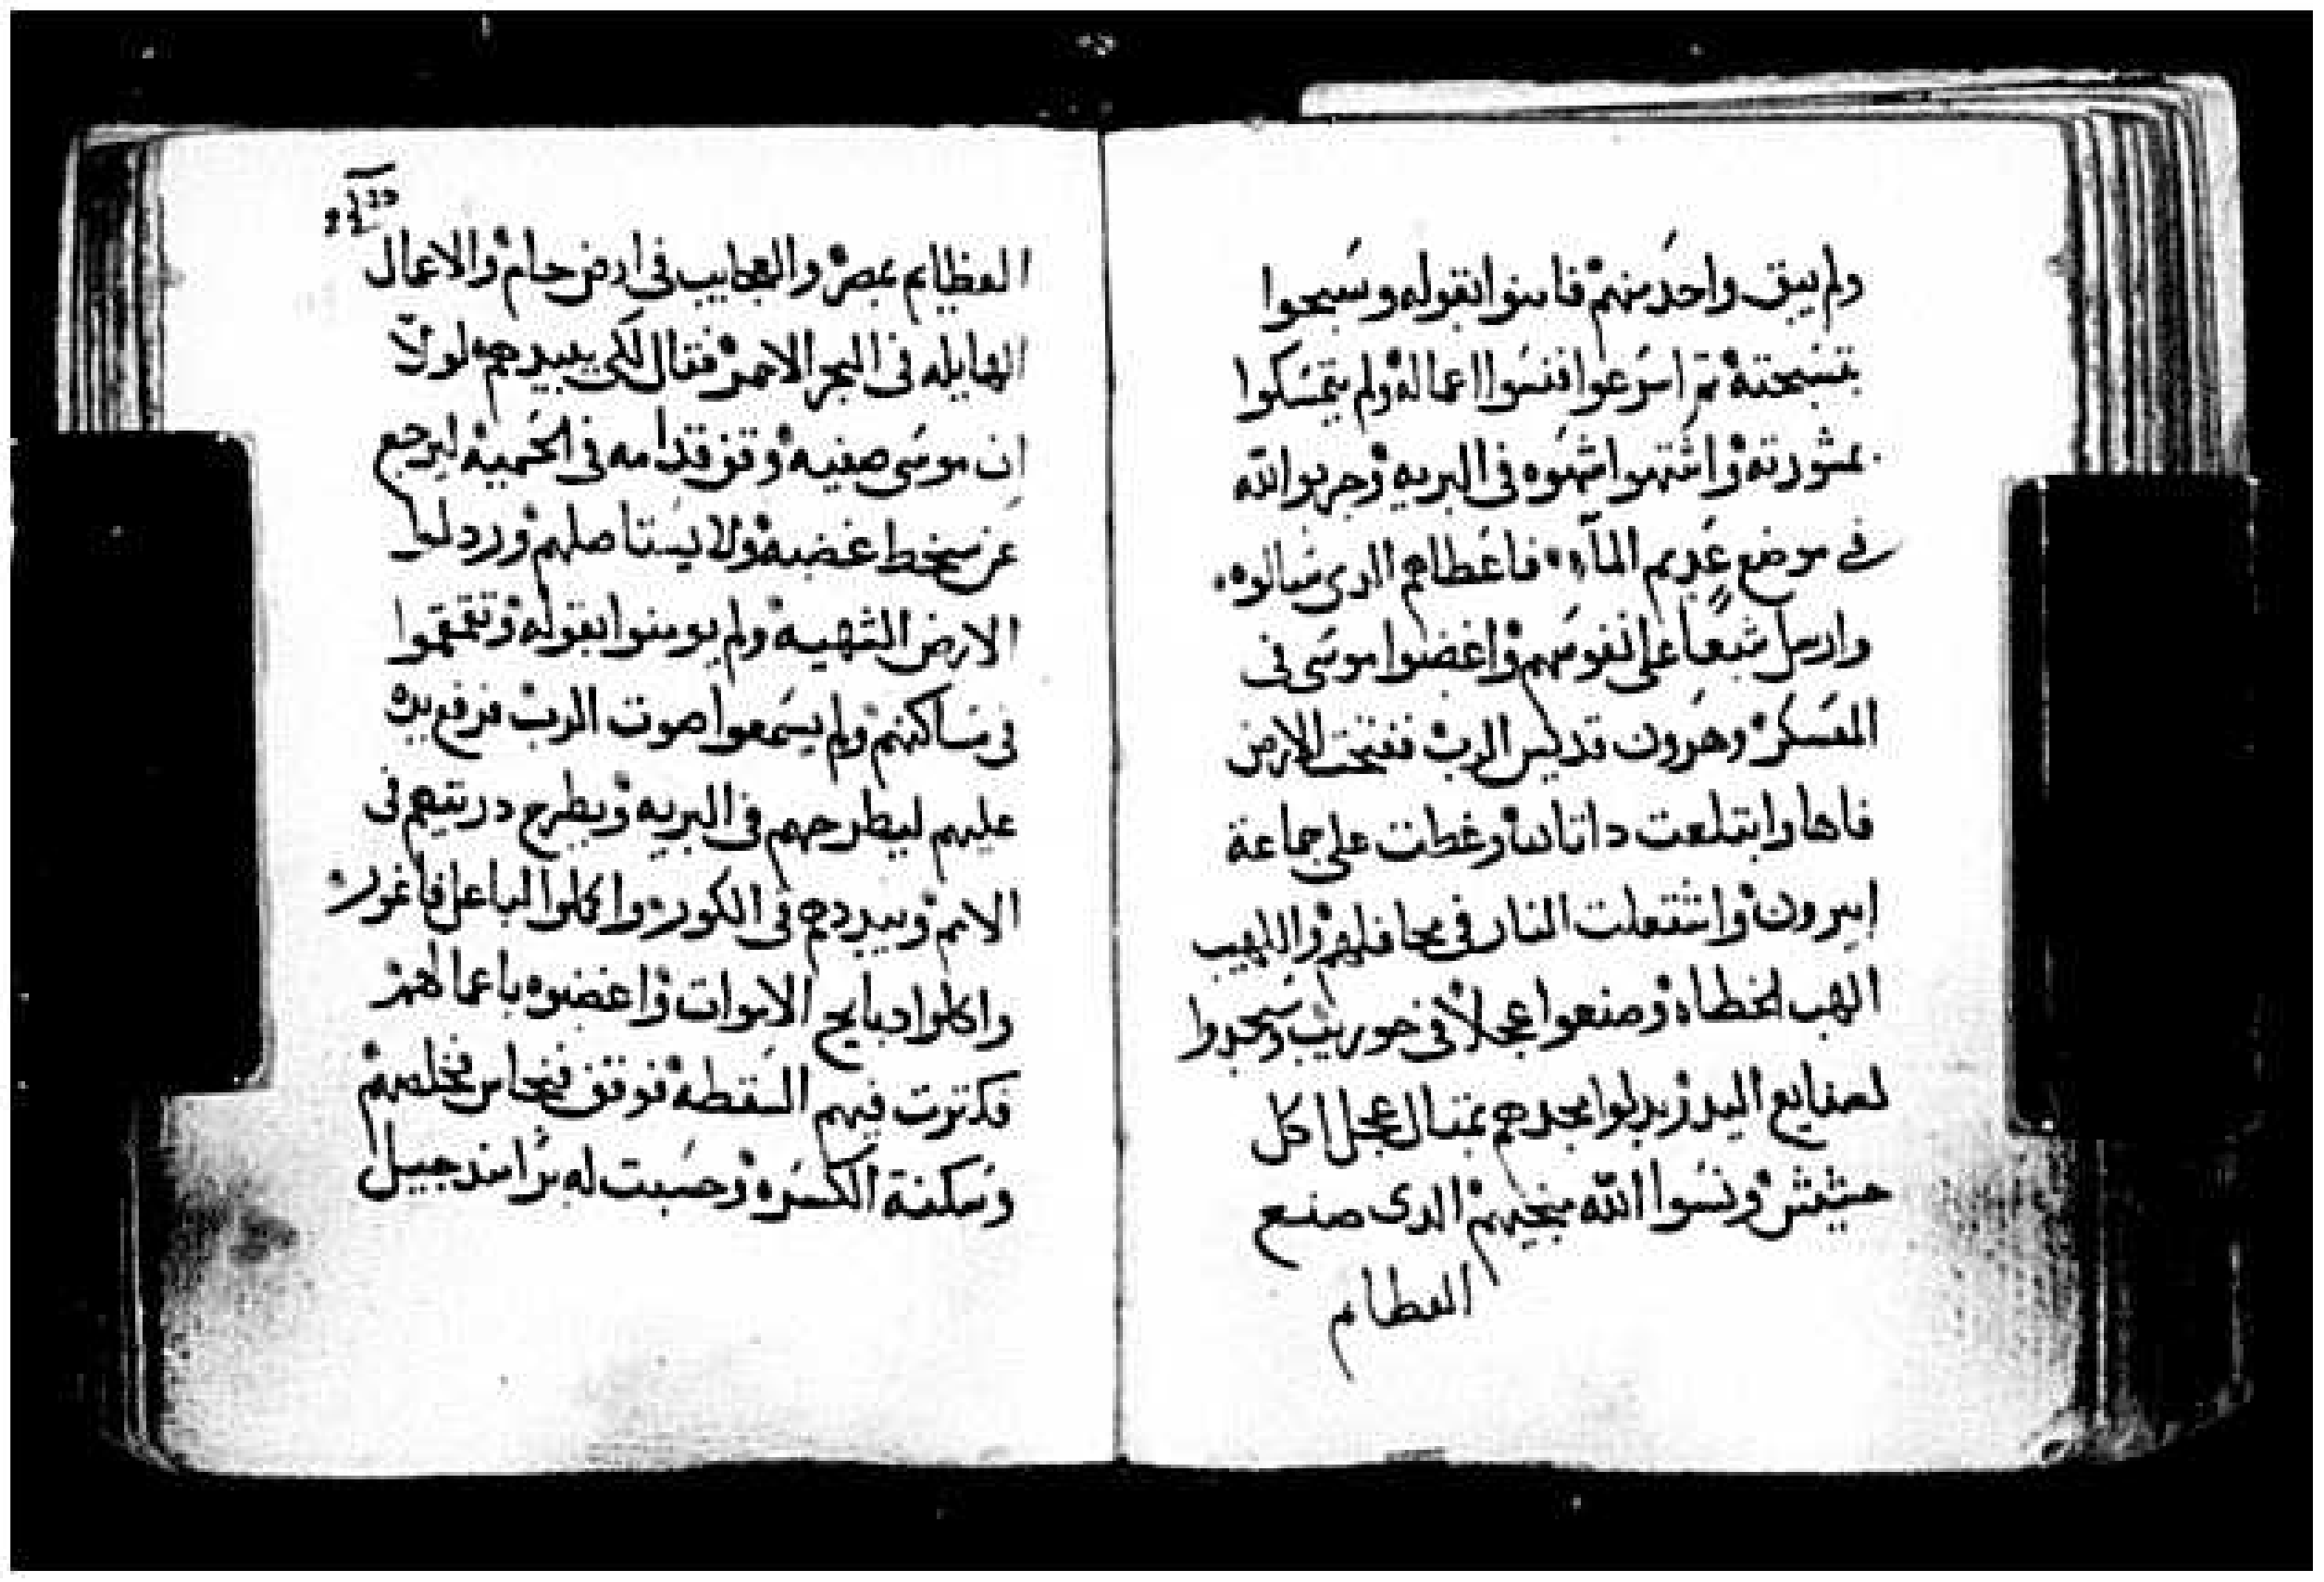 ولم يبق واحد منهم فامنوا بقوله وسبحوا
بتسبحته ثم اسرعوا فنسوا اعماله ولم يتمسكوا
بمشورته واشتهوا شهوه في البريه وجربوا الله
في موضع عديم المآء فاعطاهم الدى سالوه
وارسل شبعا على نفوسهم واغضبوا موسى فى
المعسكر وهرون قديس الرب ففتحت الارض
فاها وابتلعت داتان وغطت على جماعة
ابيرون واشتعلت النار فى محافلهم واللهيب
الهب الخطاه وصنعوا عجلا فى حوريب وسجدوا
لصنايع اليد وبدلوا مجدهم بمتال عجل اكل
حشيش ونسوا الله منجيهم الدى صنع
العظايم
العظايم بمصر والعجايب فى ارض حام والاعمال
الهايله فى البحر الاحمر فقال لكى يبيدهم لولا
ان موسى صفيه وقف قدامه فى الحميه ليرجع
عن سخط غضبه ولا يستاصلهم ورد لوا
الارض الشهيه ولم يومنوا بقوله وتقمقموا
فى مساكنهم ولم يسمعوا صوت الرب فرفع يده
عليهم ليطرحهم فى البريه ويطرح دريتهم فى
الامم ويبددهم فى الكور واكملوا لباعل فاغور
واكلوا دبايح الاموات واغضبوه باعمالهم
فكترت فيهم السقطه فوقف فنحاس فخلصهم
وسكنة الكسره وحسبت له برا من جيل